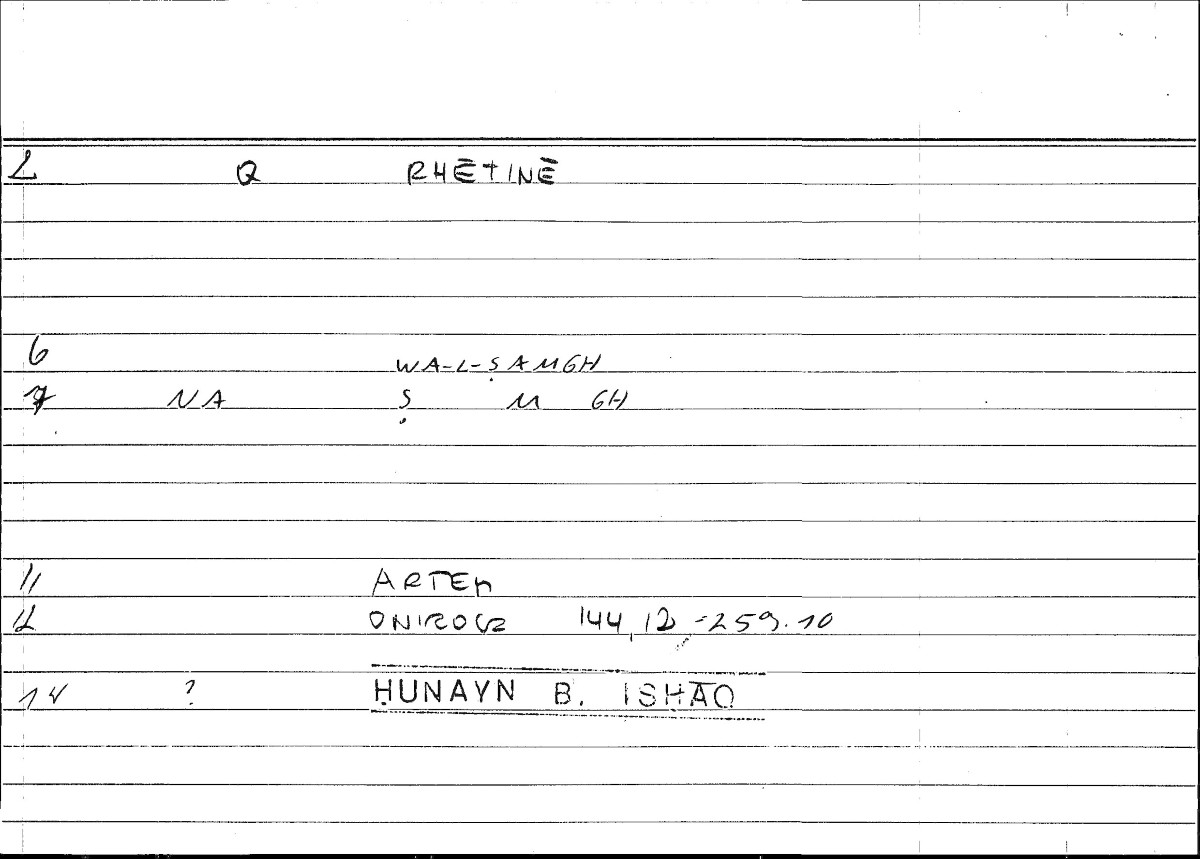 2 Q RHĒTINĒ
6 WA-L-ṢAMGH
7 NA Ṣ M GH
11 ARTEM
12 ONIROCR 144,12-259.10
14 ? ḤUNAYN B. ISḤĀQ